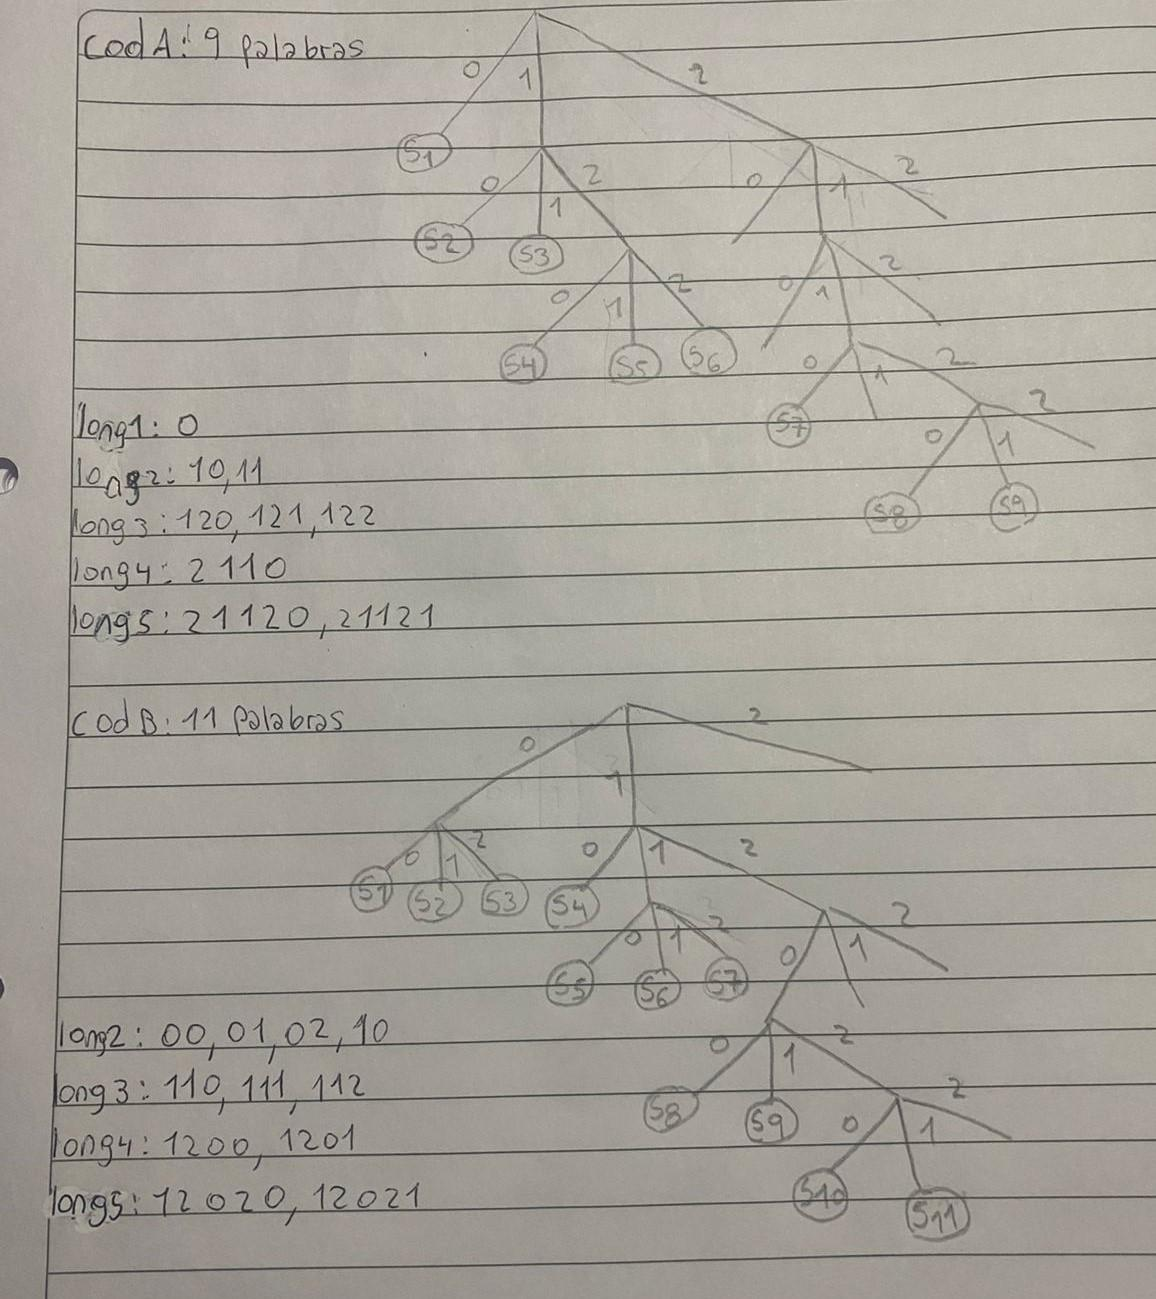 Cod A: 9 palabras
0 1 2
S1
0 1 2 0 1 2
S2 S3
0 1 2 0 1 2
S4 S5 S6
0 1 2
S7
0 1 2
S8 S9
long1: 0
long2: 10,11
long3: 120, 121, 122
long4: 2110
long5: 21120, 21121
Cod B: 11 Palabras
0 1 2
0 1 2 0 1 2
S1 S2 S3 S4
0 1 2 0 1 2
S5 S6 S7
0 1 2
S8 S9
0 1 2
S10 S11
long2: 00, 01, 02, 10
long3: 110, 111, 112
long4: 1200, 1201
long5: 12020, 12021